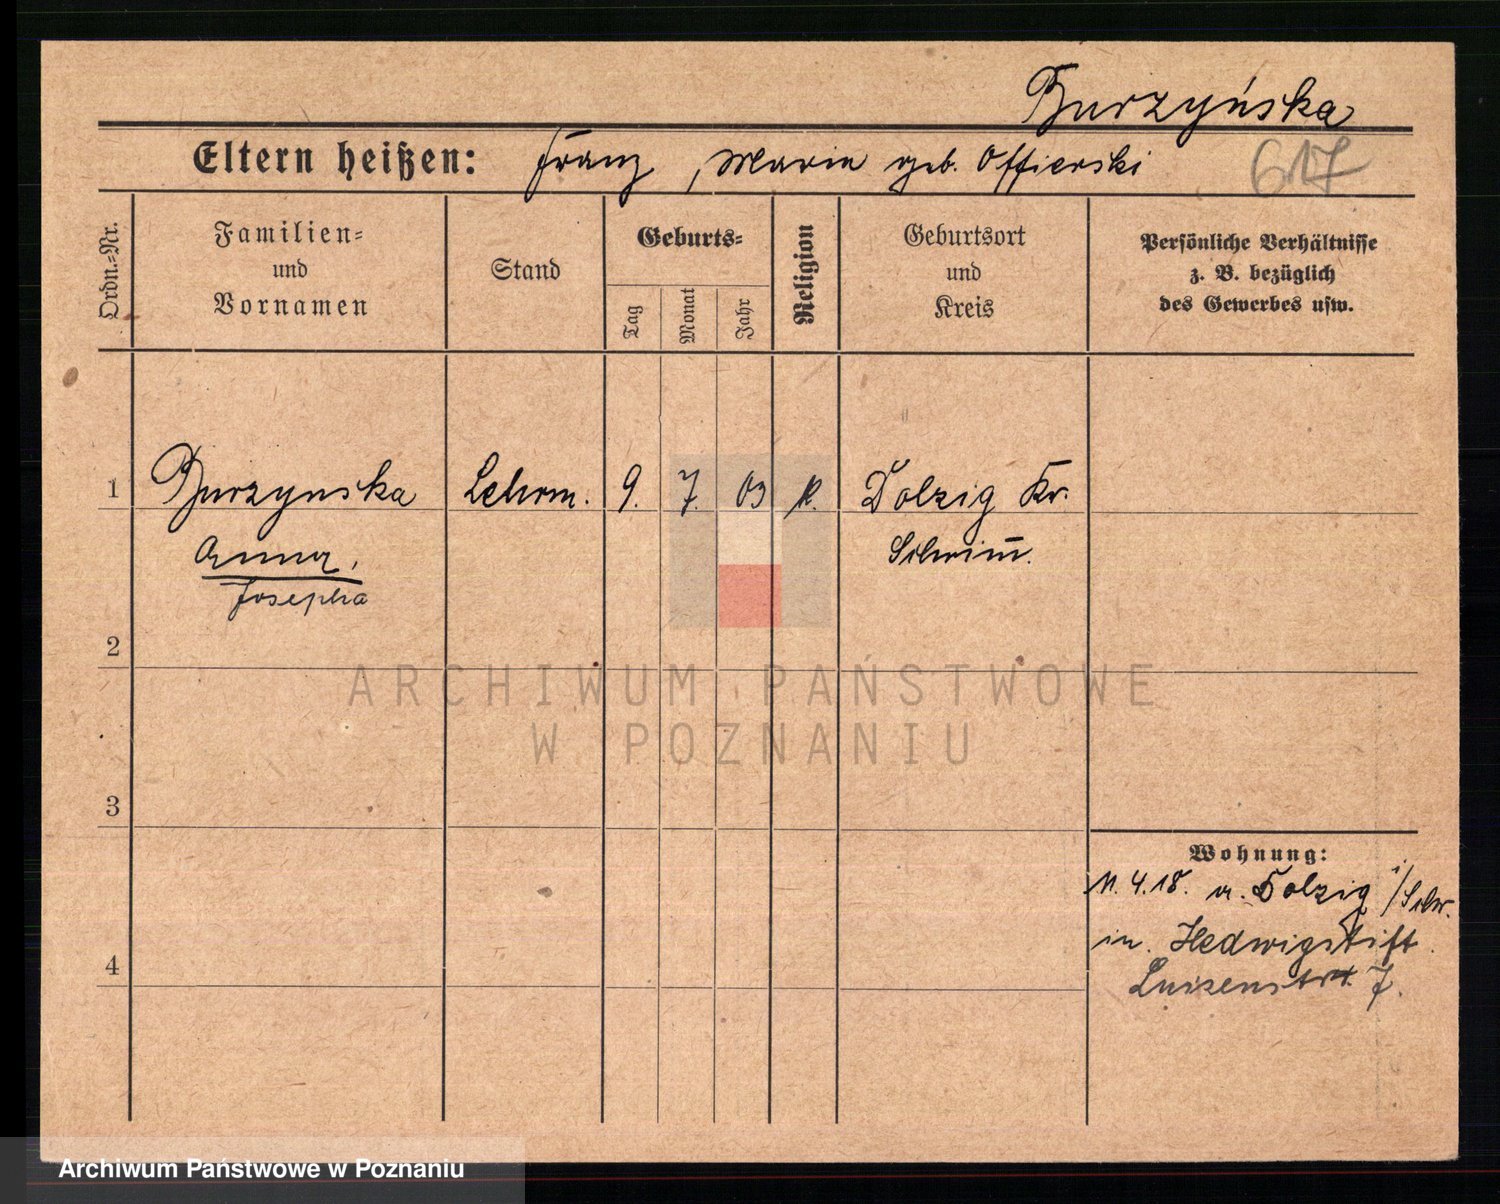 Burzyńska
Eltern heißen: Franz, Maria geb. Offierski
617
Ordn.-Nr.
Familien-
und
Vornamen
Stand
Geburts-
Tag
Monat
Jahr
Religion
Geburtsort
und
Kreis
Persönliche Verhältnisse
z. B. bezüglich
des Gewerbes usw.
1 Burzynska Lehrm. 9. 7. 03 k. Dolzig Kr.
Anna, Schrimm.
Josepha
2
3
4
Wohnung:
11.4.18. a. Dolzig i/Schr.
in. Hedwigstift
Luisenstr. 7.
ARCHIWUM PAŃSTWOWE
W POZNANIU
Archiwum Państwowe w Poznaniu